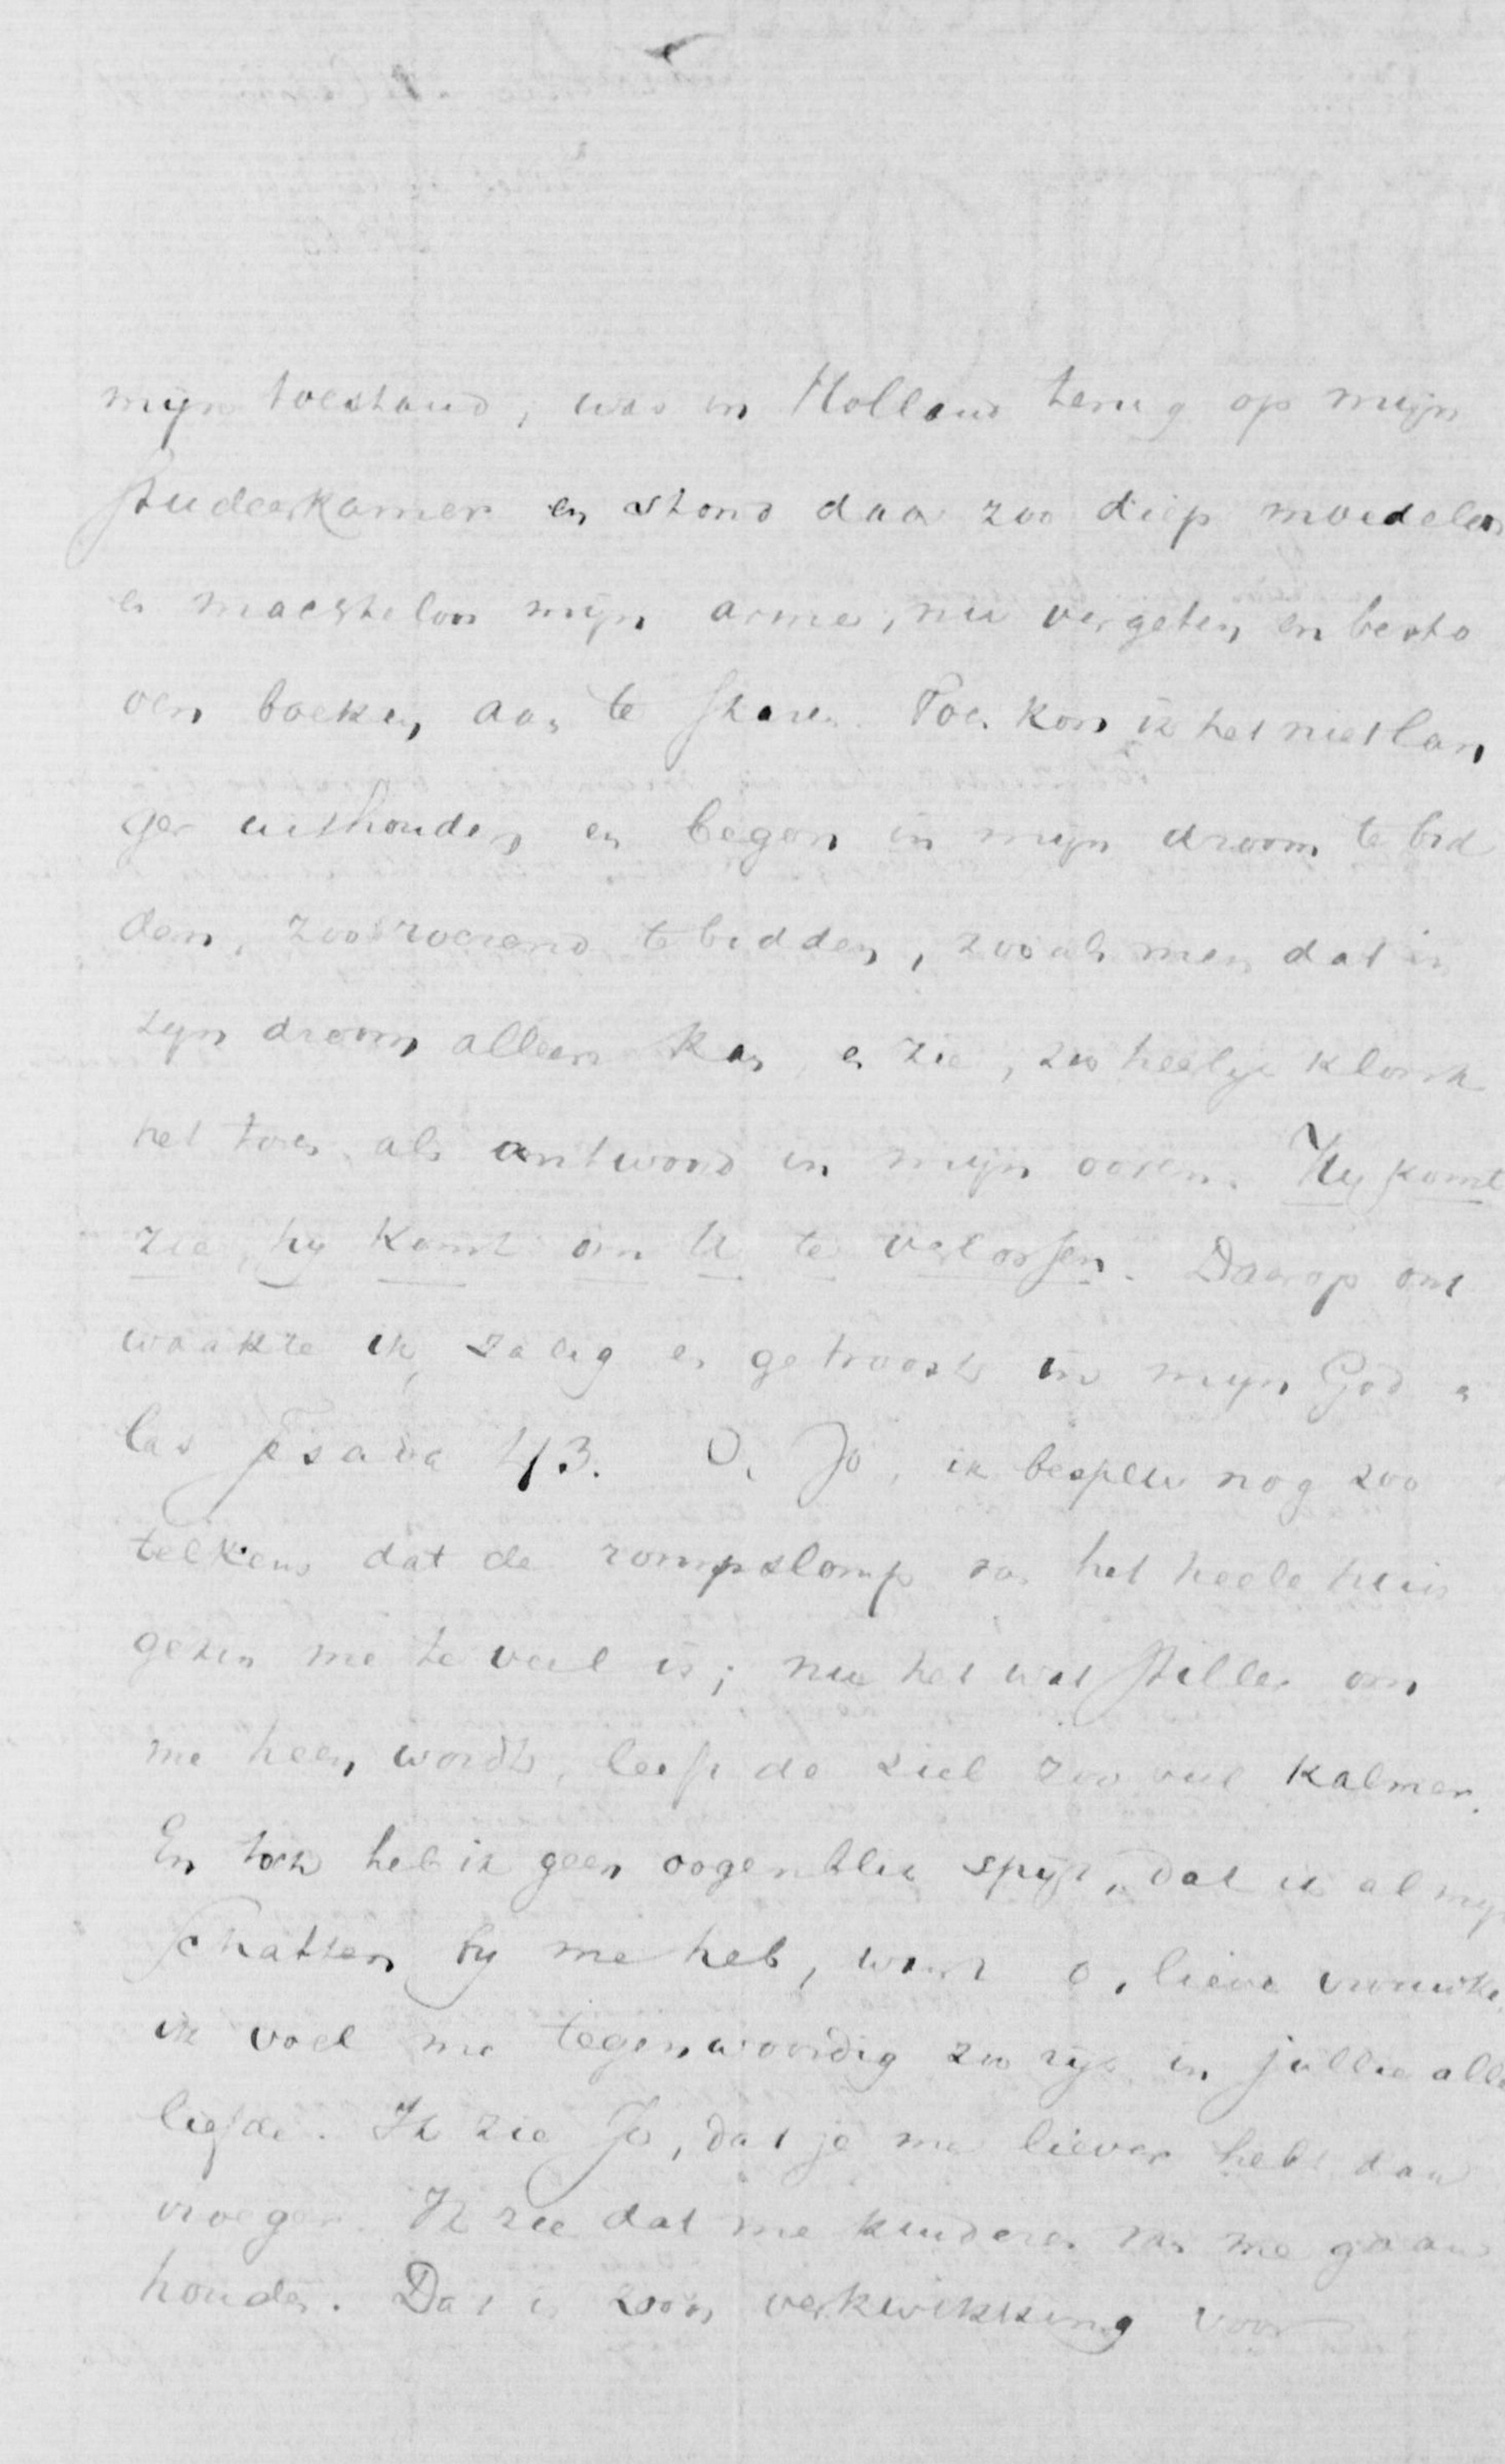 mijn toestand, was in Holland terug op mijn
studeerkamer en stond daar zoo diep moedeloos
en machteloos mijn arme, nu vergeten en besto
ven boeken aan te staren. Toen kon ik het niet lan
ger uithouden en begon in mijn droom te bid
den, zoo roerend te bidden, zooals men dat in
zijn droom alleen kan, en zie, zoo heerlijk klonk
het toen als antwoord in mijn ooren. Hij komt
zie, hij komt om U te verlossen. Daarop ont
waakte ik, zalig en getroost in mijn God en
las Jesaia 43. O, Jo, ik bespeur nog zoo
telkens dat de rompslomp van het heele huis
gezin me te veel is; nu het wat stiller om
me heen wordt, leeft de ziel zoo veel kalmer.
En toch heb ik geen oogenblik spijt, dat ik al mijn
schatten bij me heb, want o, lieve
ik voel me tegenwoordig zoo rijk in jullie aller
liefde. Ik zie Jo, dat je me liever hebt dan
vroeger. Ik zie dat me kinderen van me gaan
houden. Dat is zoo'n verkwikking voor